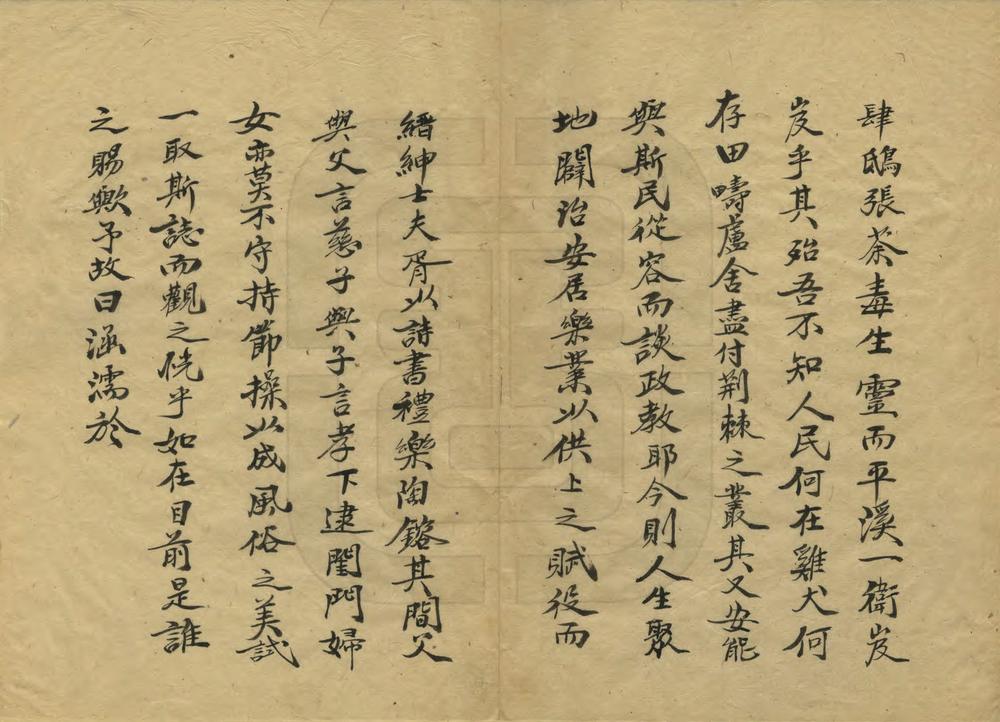 肆鴟張荼毒生靈而平溪一衛岌
岌乎其殆吾不知人民何在雞犬何
存田疇廬舍盡付荆棘之叢其又安能
與斯民從容而談政教耶今則人生聚
地闢治安居樂業以供上之賦役而
縉紳士夫胥以詩書禮樂陶鎔其間父
與父言慈子與子言孝下逮閨門婦
女亦莫不守持節操以成風俗之美試
一取斯誌而觀之恍乎如在目前是誰
之賜歟予故曰涵濡於